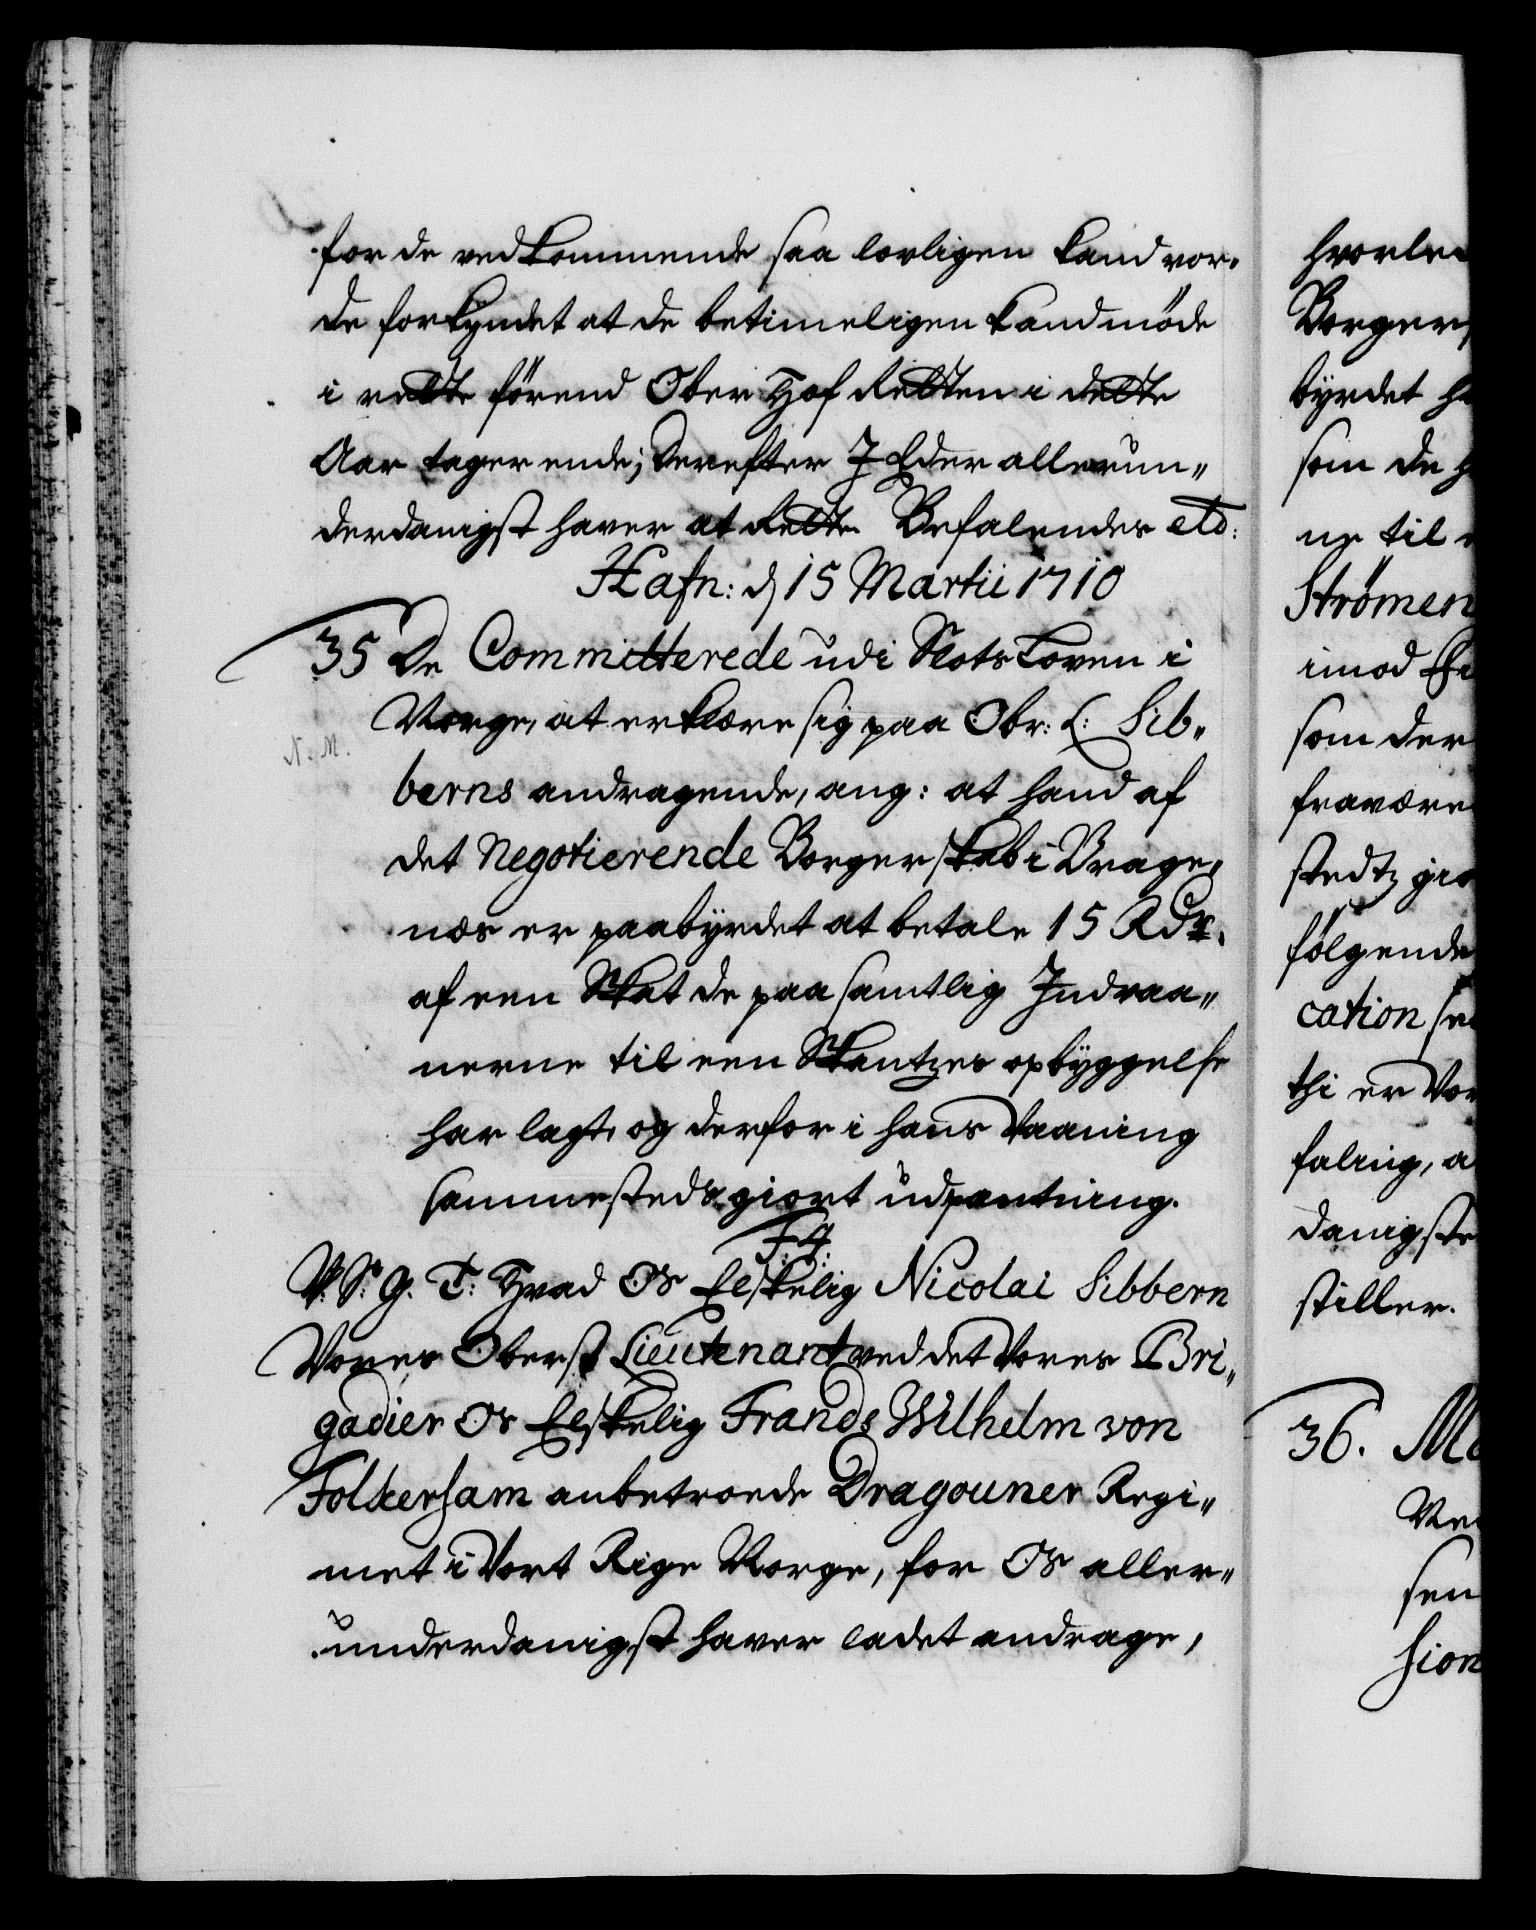 for de vedkommende saa lovligen kand vor-
de forkyndet at de betimeligen kand møde
i rætte førend Ober Hof Retten i dette
Aar tager ende; Derefter I Eder allerun„
derdanigst haver at Rette. Befalendes etc:
Hafn: d 15 Martii 1710
35 De Committerede udi Slots Loven i
Norge, at erklære sig paa Obr: L: Sib„
N. M.
berns andragende, ang: at hand af
det Negotierende Borgerskab i Brage„
næs er paabyrdet at betale 15 Rdr.
af een Skat de paa samtlig Indvaa„
nerne til een Skantzes opbyggelse
har lagt, og derfor i hans Vaaning
sammesteds giort udpantning.
F: 4:
V: S: G: T: Hvad Os Elskelig Nicolai Sibbern
Vores Oberst Lieutenant ved det Vores Bri„
gadier Os Elskelig Frands Wilhelm von
Folkersam anbetroede Dragouner Regi„
met i Vort Rige Norge, for Os aller„
underdanigst haver ladet andrage,
Borger
byrdet
som de
ne til
Strömen
imod
som der
fravære
stedtz
følgende
cation
thi er
faling, a
danigste
stiller.
36.
sen
sion